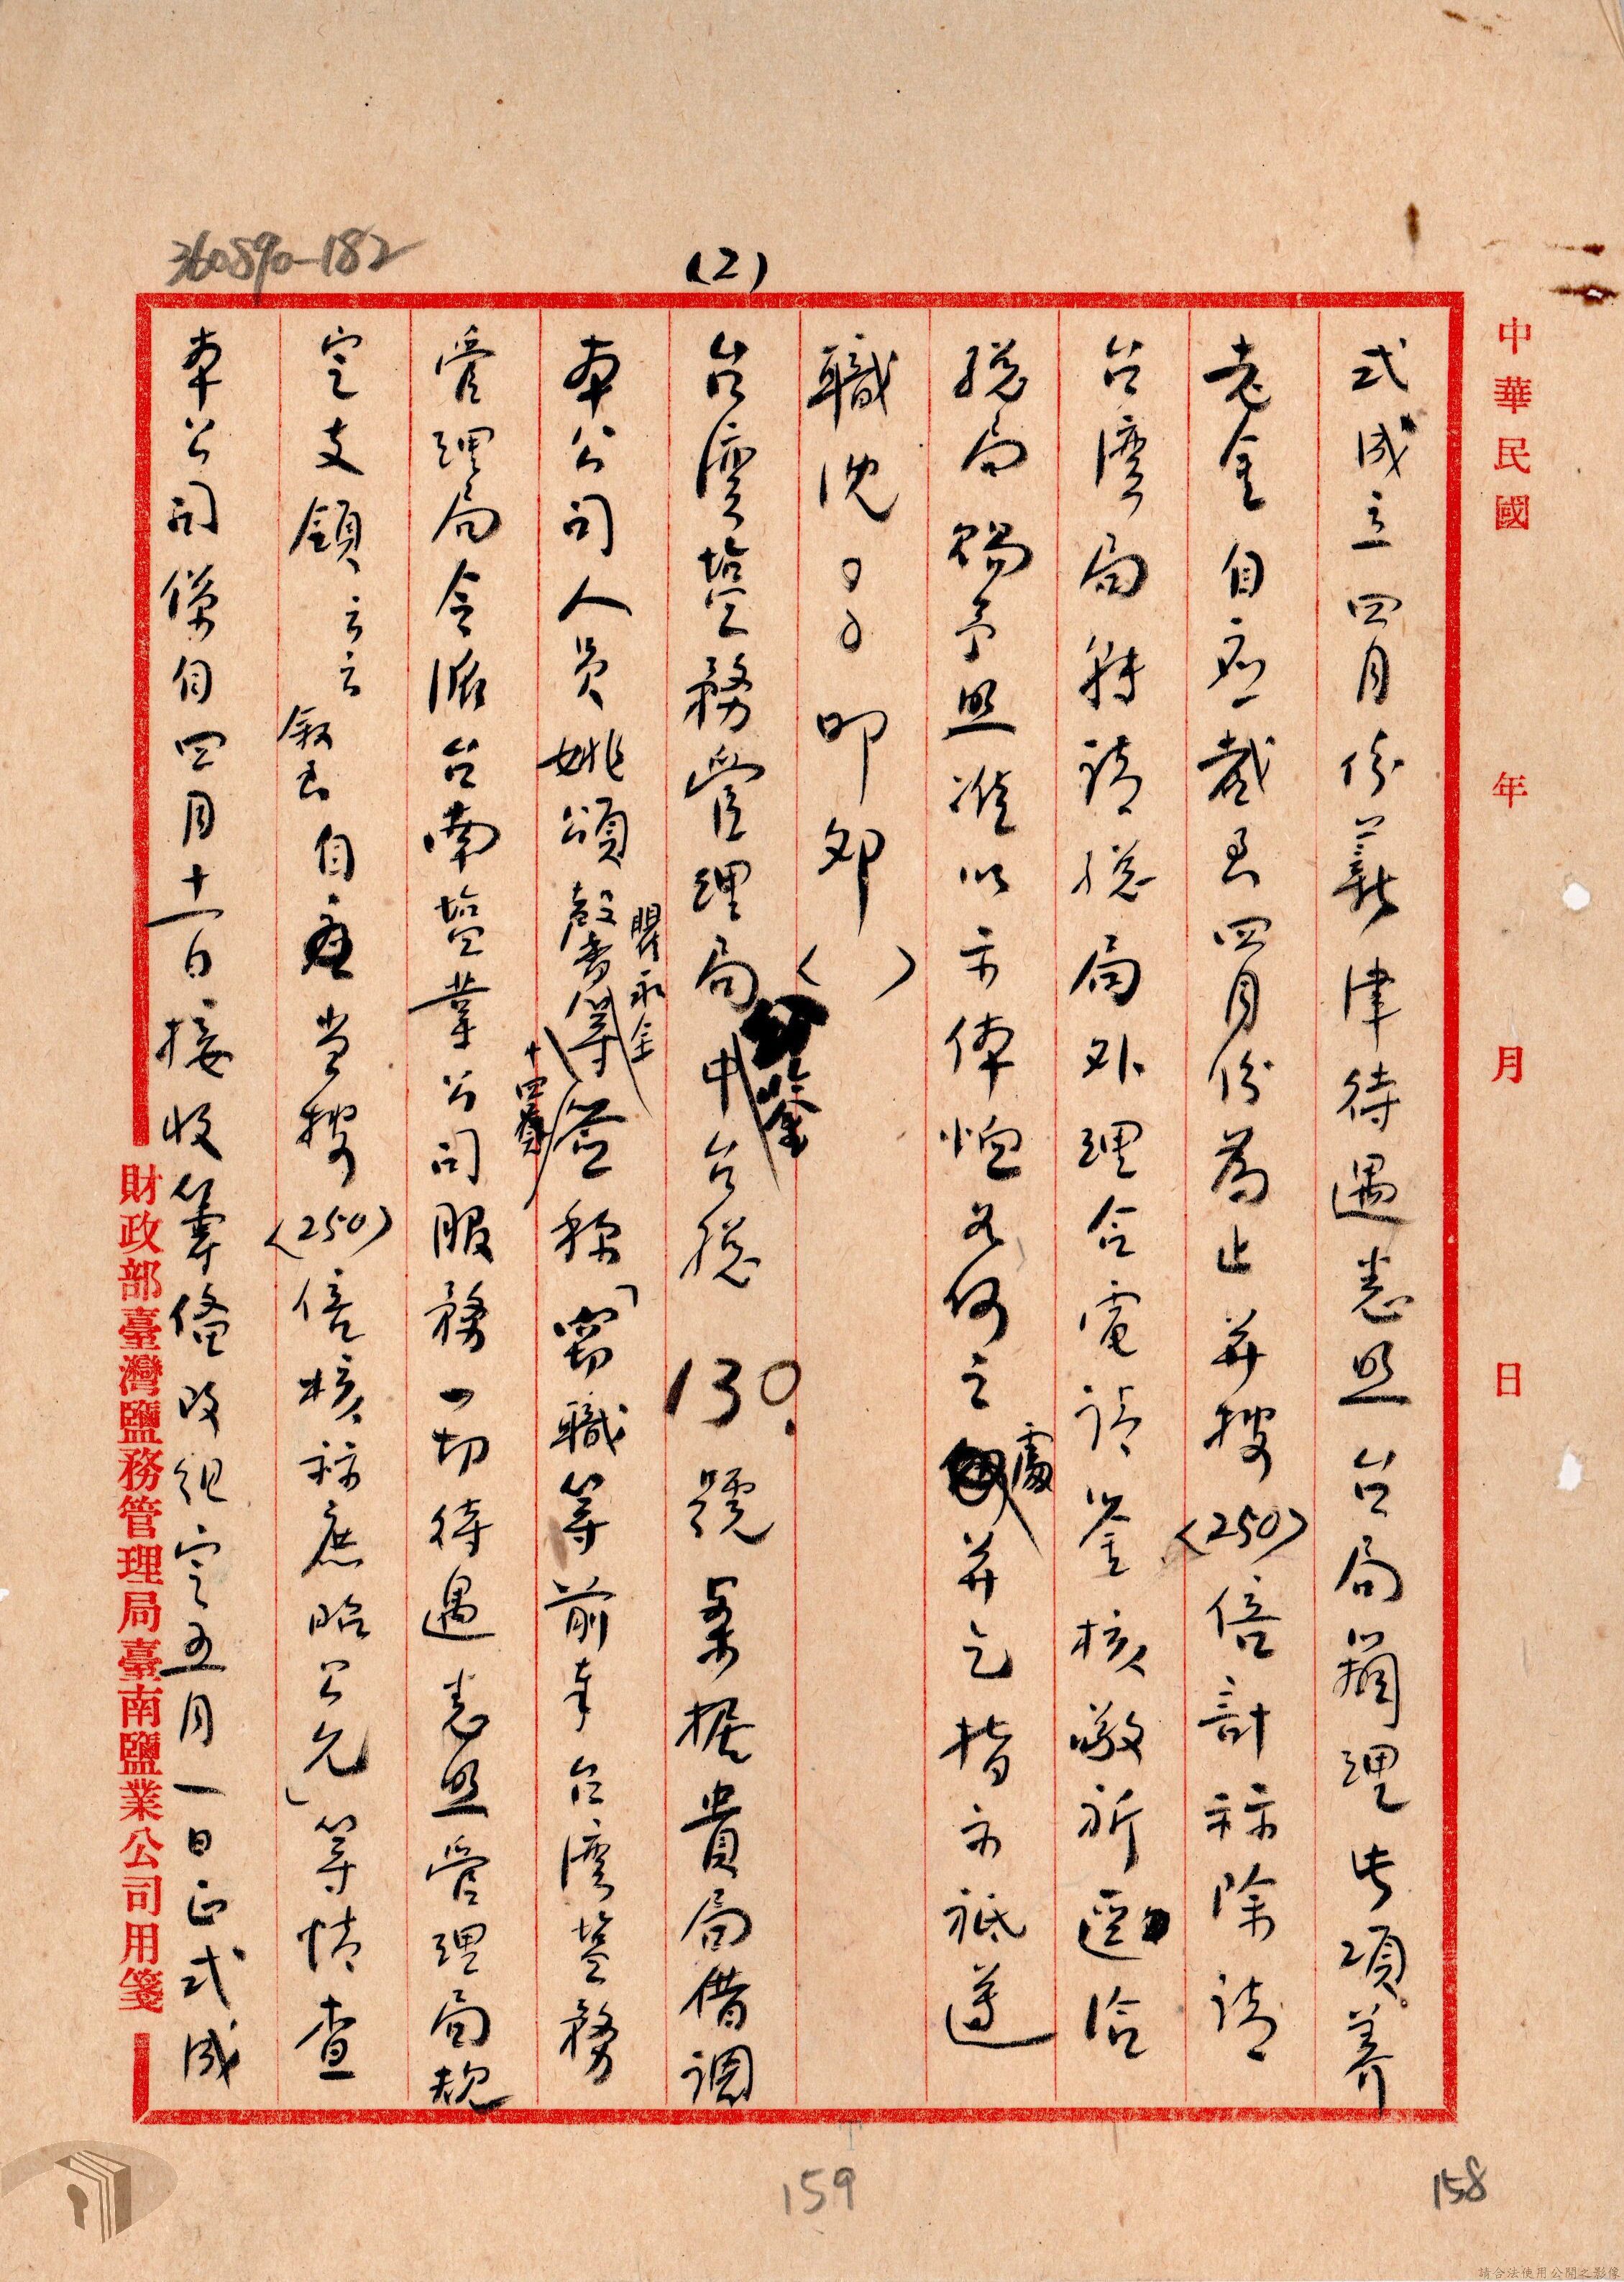 中華民國 年 月 日
36089o-182
(2)
式成立四月份薪津待遇悉照台局辦理此項養
老金自應截至四月份為止并按(250)倍計梂除請
台灣局轉請總局外理合電請鑒核敬祈逕洽
總局賜予照准以示体恤如何之處并乞指示祗遵
職沈 叩卯( )
台灣塩務管理局 鈞鑒 台總 130. 號案據貴局借調
本公司人員姚頌馨 瞿永全 等 十四員 簽稱「竊職等前奉台湾塩務
管理局令派台南塩業公司服務一切待遇悉照管理局規
定支領云云 敘至 自應按(250)倍核梂庶昭公允」等情查
本公司係自四月十一日接收籌備改組定五月一日正式成
財政部臺灣鹽務管理局臺南鹽業公司用箋
159
158
請合法使用公開之影像